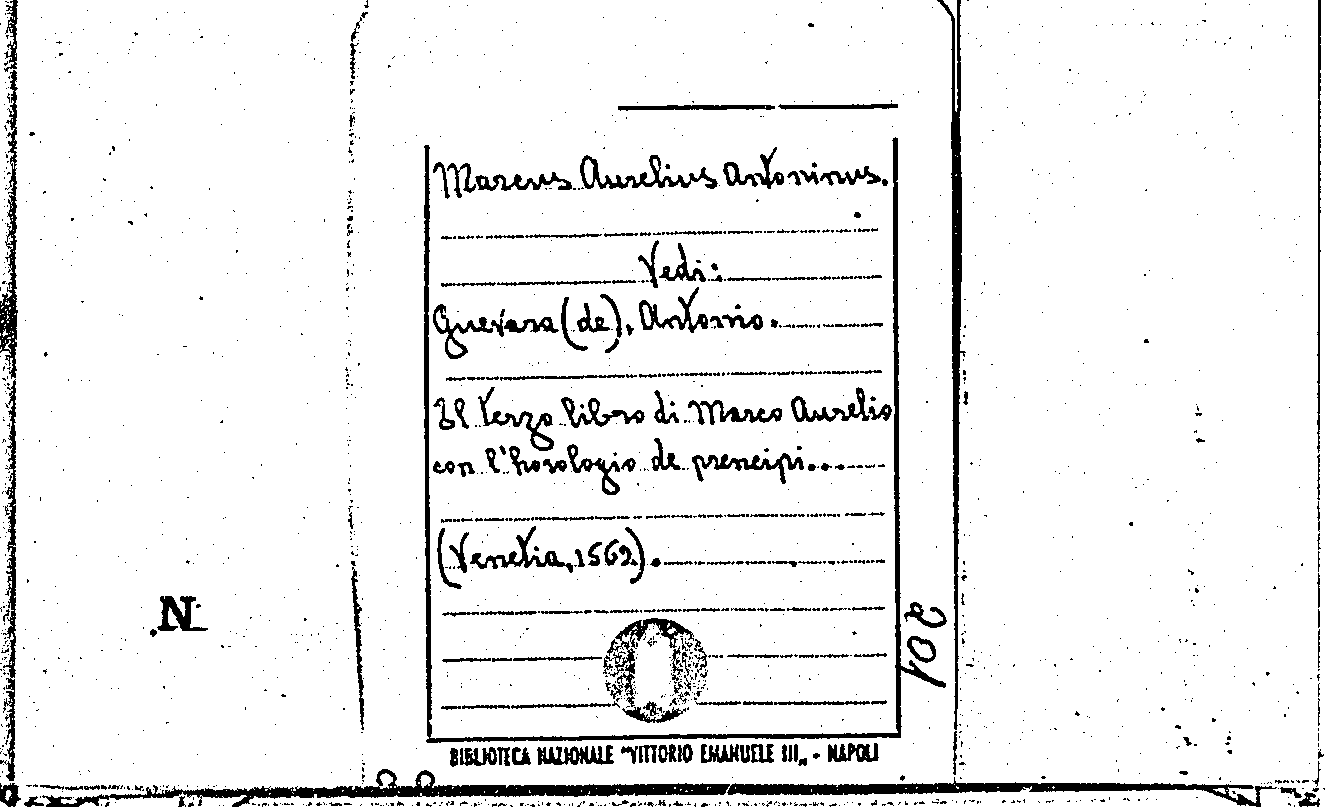 Marcus Aurelius Antoninus.
Vedi:
Guevara (de), Antonio.
Il terzo libro di Marco Aurelio
con l'horologio de prencipi...
(Venetia, 1562).
N
201
BIBLIOTECA NAZIONALE "VITTORIO EMANUELE III„ - NAPOLI